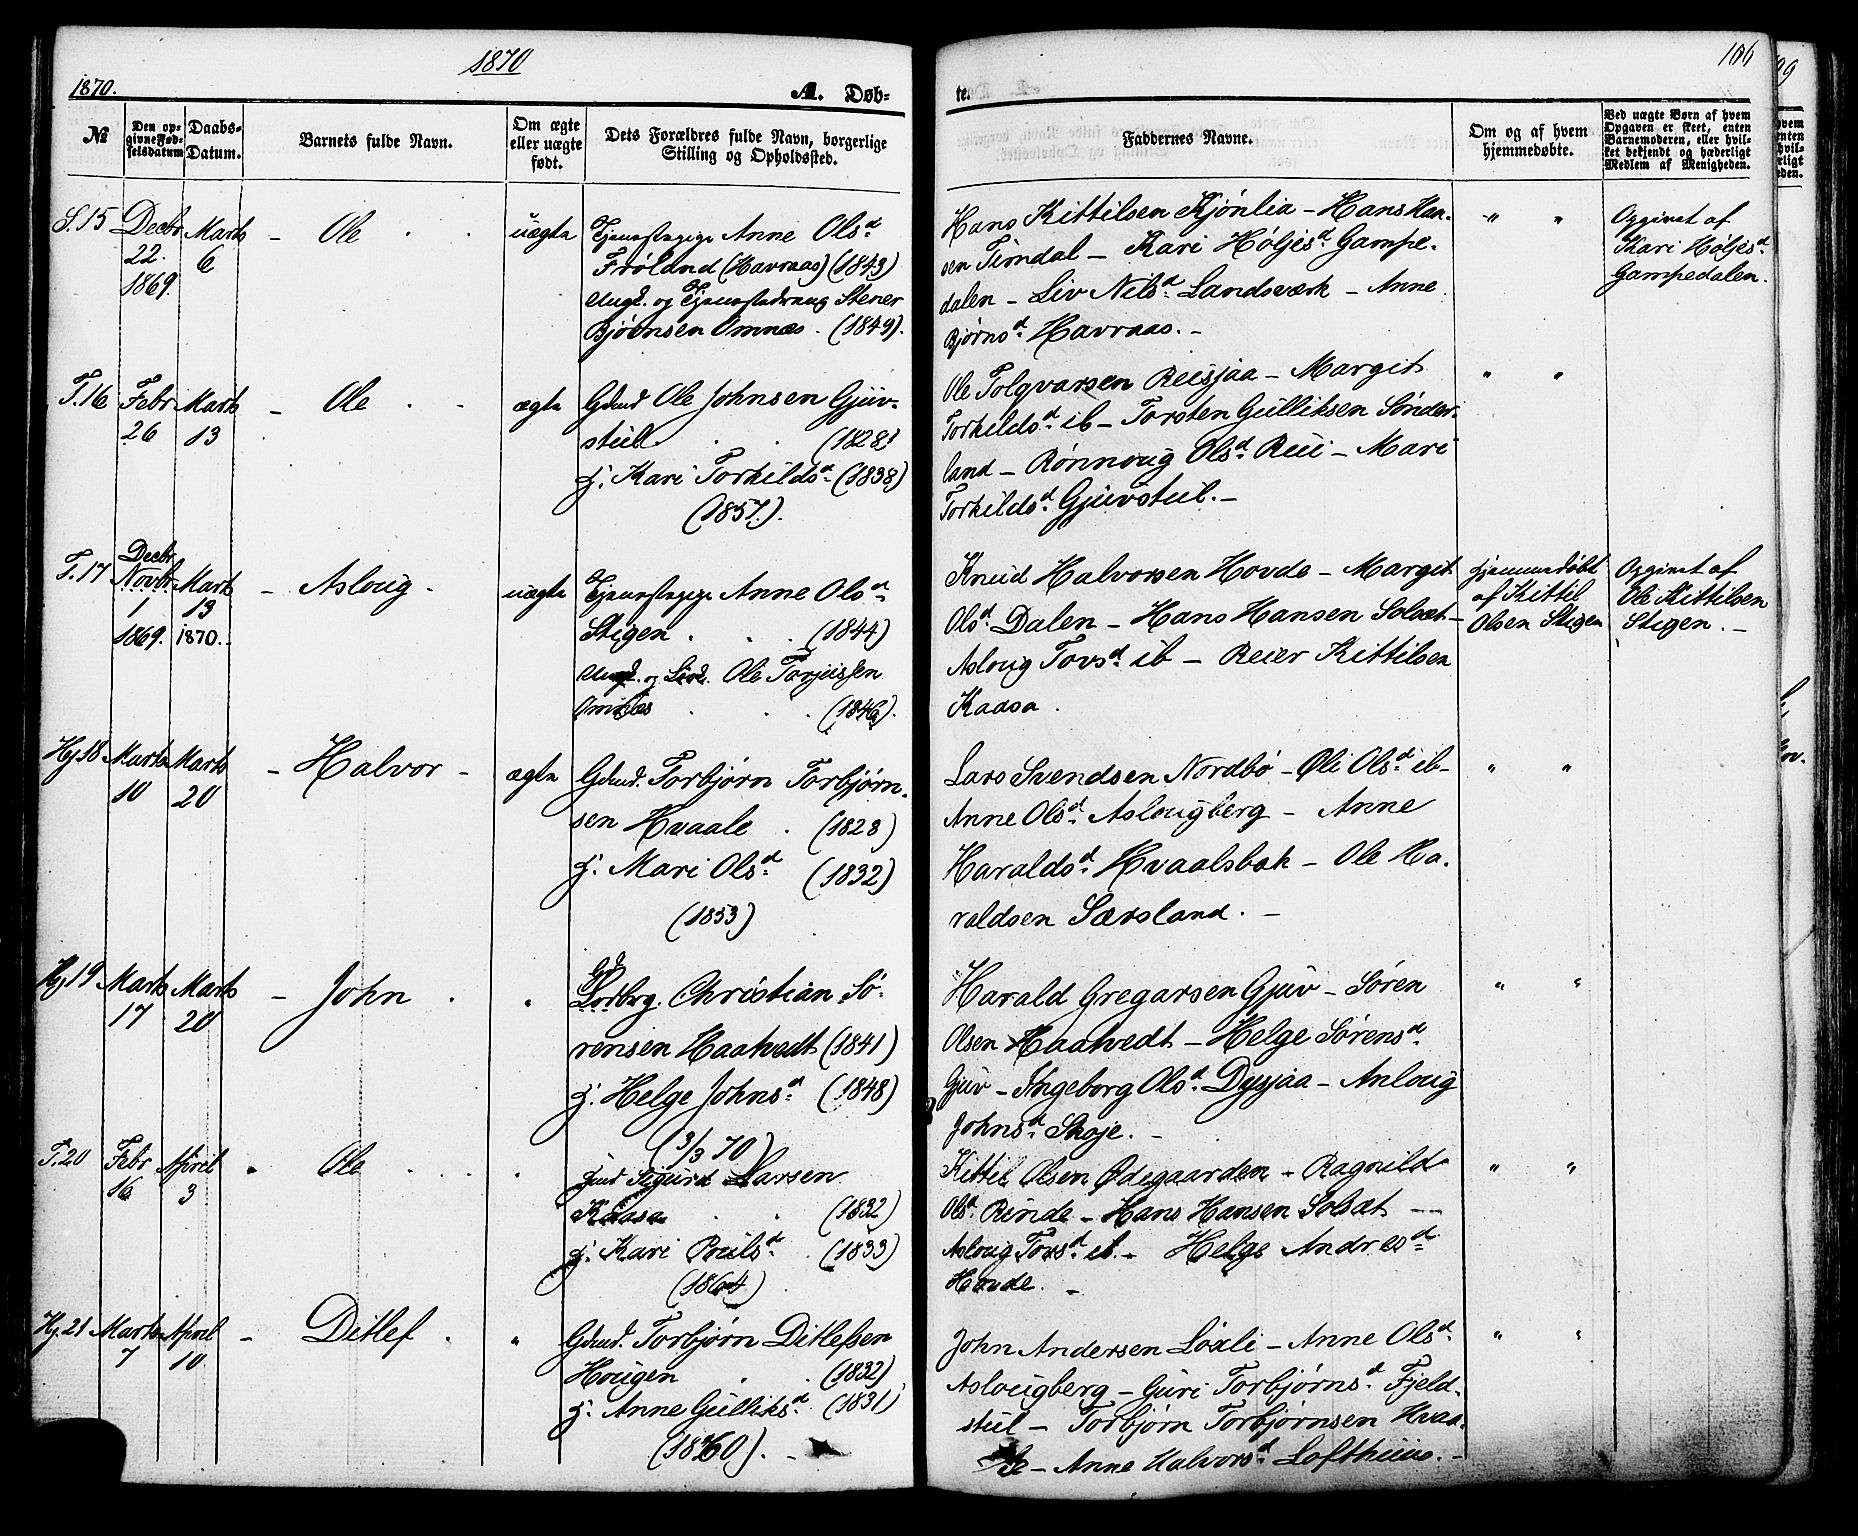 1870
1870.
A. Døb-
№
Den op-
givne Fød-
selsdatum
Daabs-
Datum.
Barnets fulde Navn.
Om ægte
eller uægte
født.
Dets Forældres fulde Navn, borgerlige
Stilling og Opholdssted.
S. 15 Decbr Marts - Ole uægte Tjenestepige Anne Olsd
22. 6 Frøland (Havraas) (1843)
1869. Ungk. og Tjenestedreng Stener
Bjørnsen Omnæs. (1849).
T. 16 Febr Marts - Ole ægte Gdmd Ole Johnsen Gjuv-
26 13 stul (1828)
h: Kari Torkildsd (1838)
(1857).
Decbr
T. 17 Novbr Marts - Asloug - uægte Tjenestepige Anne Olsd
1 13 Stigen (1844)
1869. 1870. Ungk. og Ole Torjussen
Omnæs (1846).
Hj. 18 Marts Marts - Halvor - ægte Gdmd. Torbjørn Torbjørn-
10 20 sen Hvaale (1828)
h: Mari Olsd (1832)
(1853)
Hj. 19 Marts Marts - John " Christian Sø-
17 20 rensen Haatvedt (1841)
h: Helge Johnsd (1848)
(3/3 70)
T. 20 Febr April " Ole " Sigurd Larsen
16 3 Kaasa (1832)
h: Kari Poulsd (1833)
(1864)
Hj. 21 Marts April - Ditlef " Gdmd. Torbjørn Ditlefsen
7 10 Hougen (1832)
h: Anne Gulliksd (1831)
(1860). -
106
te.
Faddernes Navne.
Om og af hvem
hjemmedøbte.
Ved uægte Børn af hvem
Opgaven er skeet, enten
Barnemoderen, eller hvil-
ket bekjendt og hæderligt
Medlem af Menigheden.
Hans Kittilsen Kjønlia - Hans Han- " " Opgivet af
sen Timdal - Kari Høljesd Gampe- Kari Høljesd
dalen - Liv Nilsd Landsværk - Anne Gampedalen.
Bjørnsd Havraas. -
Ole Folqvarsen Reisjaa - Margit " "
Torkildsd ib - Torsten Gulliksen Sønder-
land - Rønnoug Olsd Rui - Mari
Torkildsd Gjuvstul. -
Knud Halvorsen Hovde - Margit hjemmedøbt Opgivet af
Olsd Dalen - Hans Hansen Solsæt - af Kittil Ole Kittilsen
Asloug Tovsd ib - Reier Kittilsen Olsen Stigen Stigen. -
Kaasa.
Lars Svendsen Nordbø - Øli Olsd ib - " "
Anne Olsd Aslougberg - Anne
Haraldsd Hvaalsbak - Ole Ha-
raldsen Særsland. -
Harald Gregarsen Gjuv - Søren " "
Olsen Haatvedt - Helge Sørensd
Gjuv - Ingeborg Olsd Dysjaa - Anloug
Johnsd Skoje. -
Kittil Olsen Ødegaarden - Ragnild " "
Olsd Rinde - Hans Hansen Solsæt -
Asloug Tovsd ib. - Helge Andresd
Hovde. -
John Andersen Løxli - Anne Olsd " "
Aslougberg - Guri Torbjørnsd Fjeld-
stul - Torbjørn Torbjørnsen Hvaa-
le - Anne Halvorsd Lofthuus. -